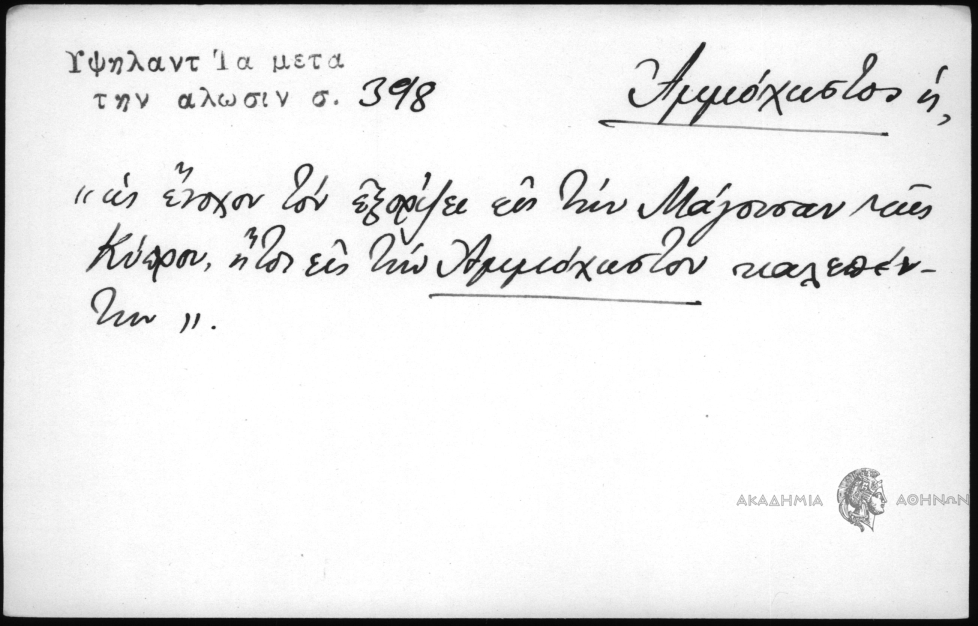 Υψηλαντ Ία μετα
την αλωσιν σ. 398
Ἀμμόχωστος ἡ,
"ὡς ἔνοχον τόν ἐξορίζει εἰς τήν Μάγουσαν τῆς
Κύπρου, ἤτοι εἰς τήν Ἀμμόχωστον
την".
ΑΚΑΔΗΜΙΑ ΑΘΗΝΩΝ